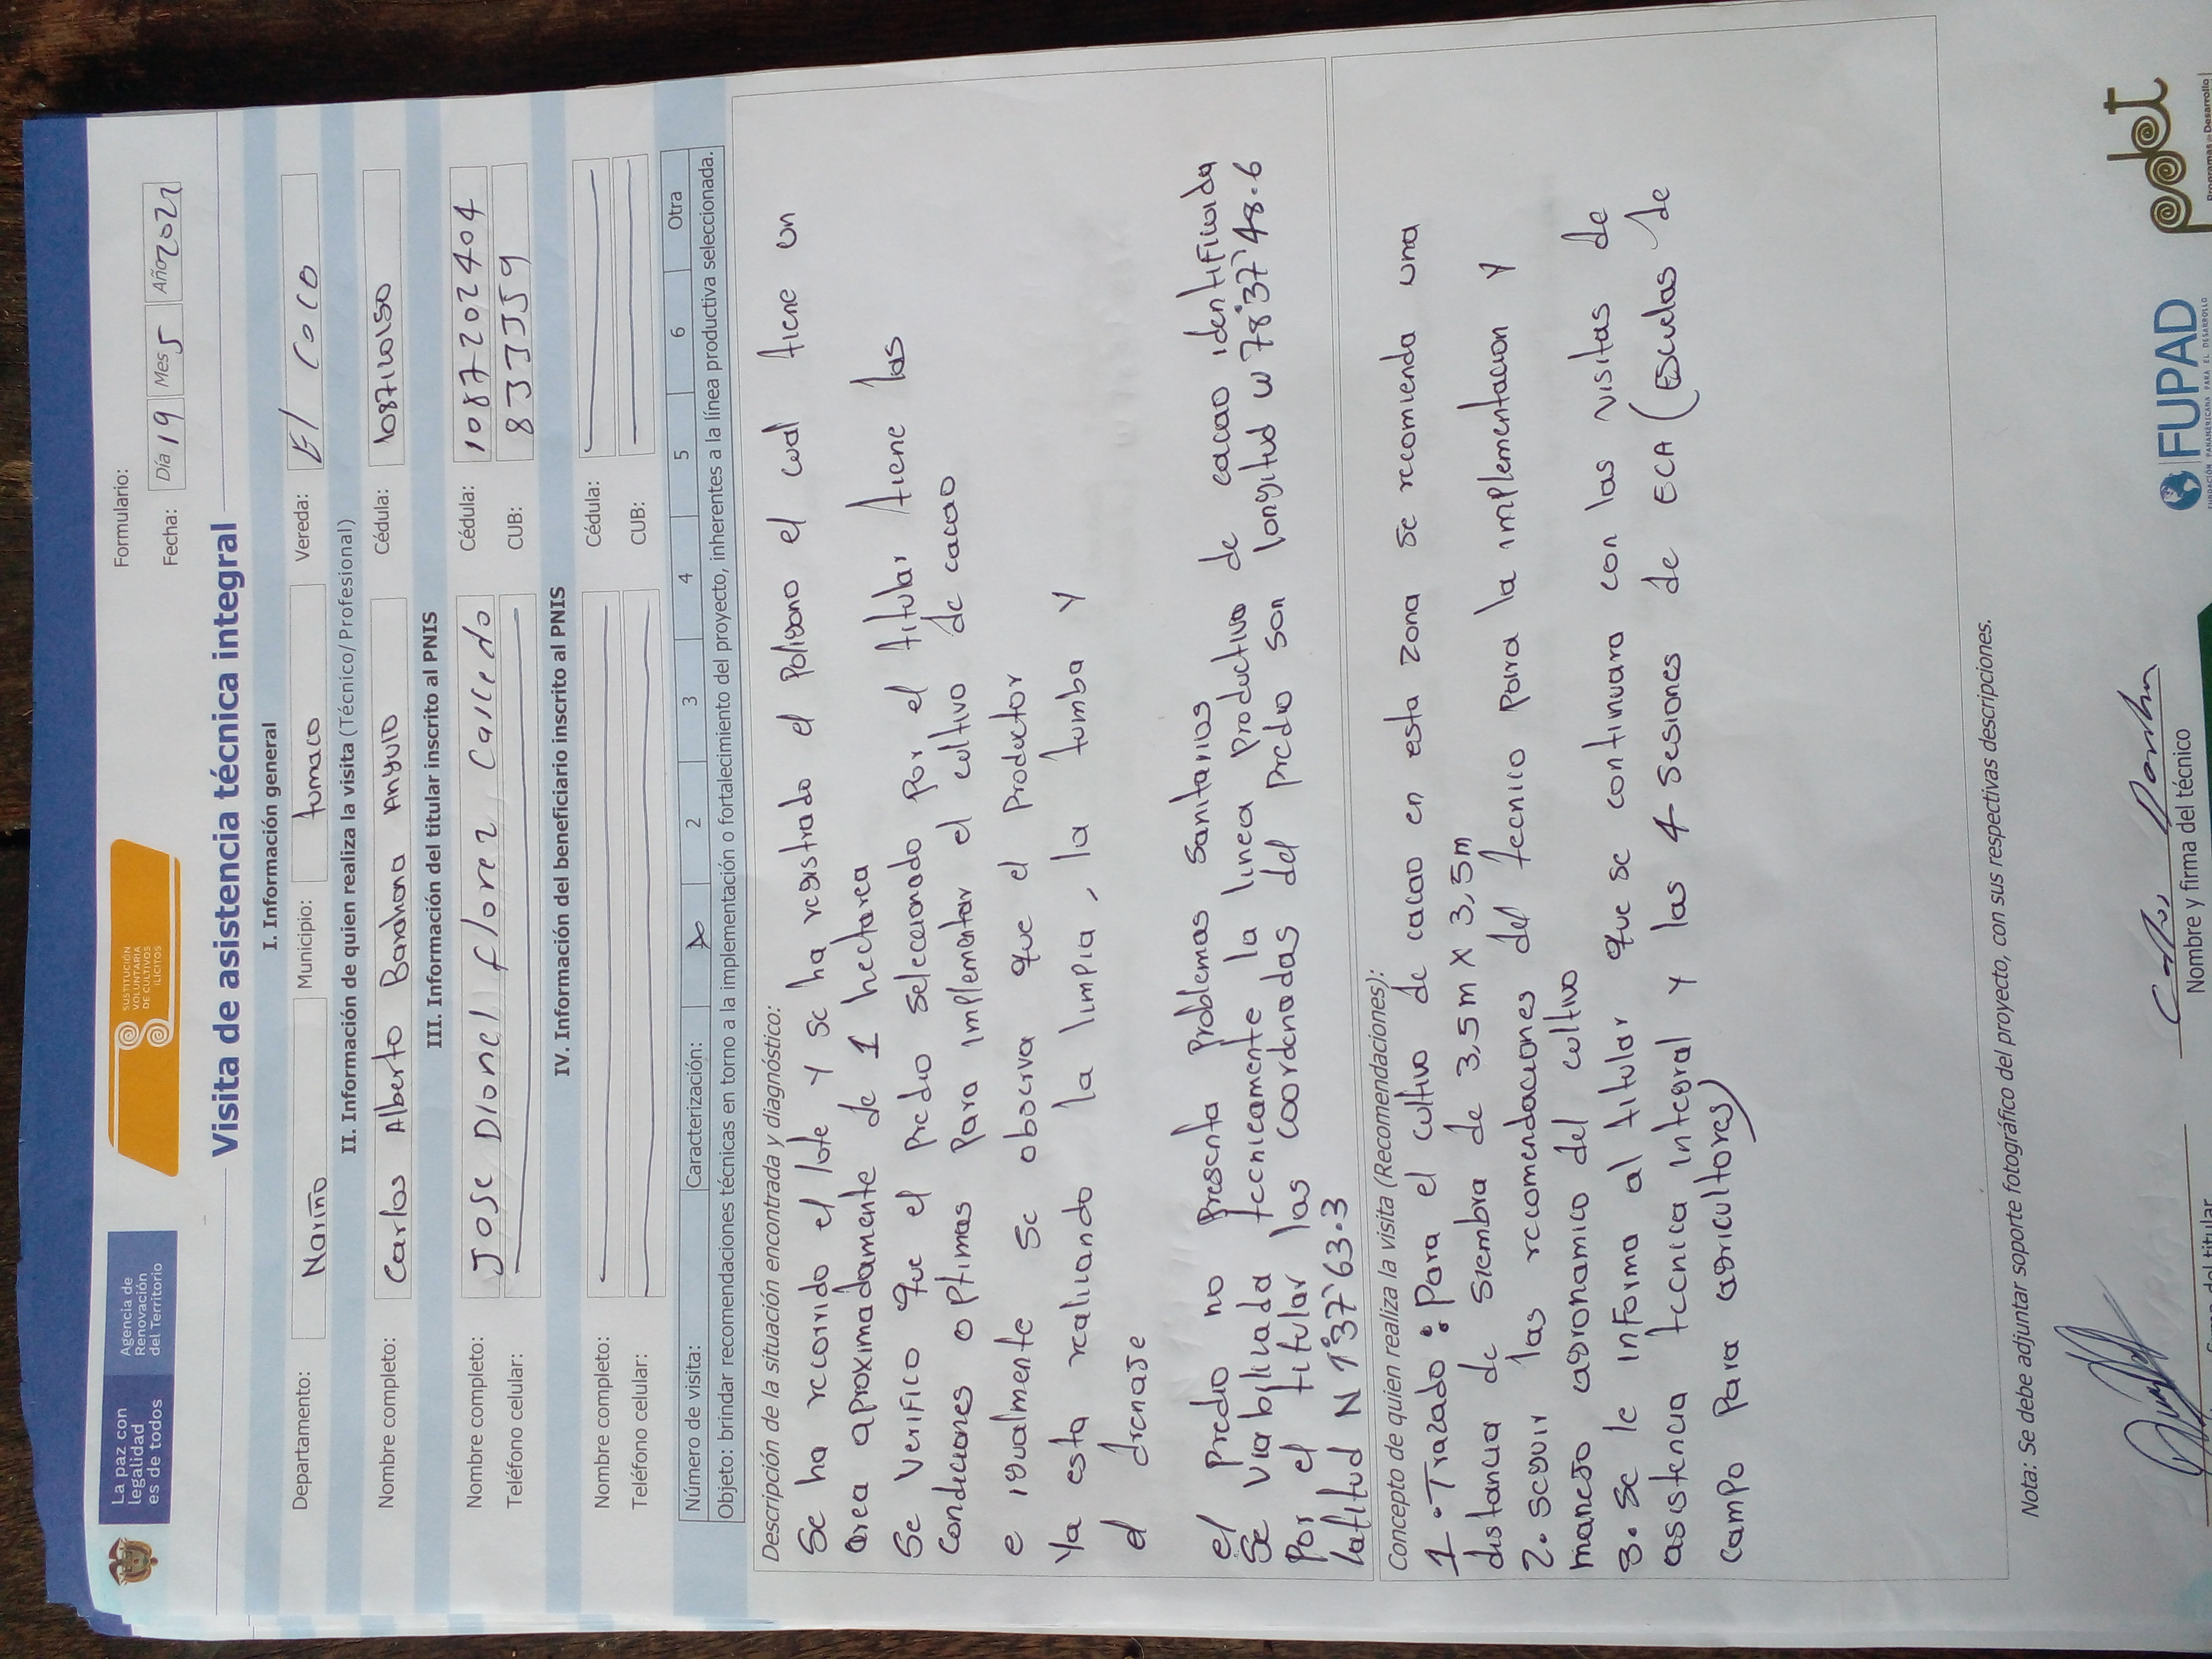 La paz con
legalidad
es de todos
Agencia de
Renovación
del Territorio
SUSTITUCIÓN
VOLUNTARIA
DE CULTIVOS
ILÍCITOS
Formulario:
Fecha: Día 19 Mes 5 Año 2021
Visita de asistencia técnica integral
I. Información general
Departamento: Nariño Municipio: tumaco Vereda: El Coco
II. Información de quien realiza la visita (Técnico/Profesional)
Nombre completo: Carlos Alberto Barahona Angulo Cédula: 1087120150
III. Información del titular inscrito al PNIS
Nombre completo: Jose Dionel florez Caicedo Cédula: 1087202404
Teléfono celular: CUB:
IV. Información del beneficiario inscrito al PNIS
Nombre completo: Cédula:
Teléfono celular: CUB:
Número de visita: Caracterización: 2 3 4 5 6 Otra
Objeto: brindar recomendaciones técnicas en torno a la implementación o fortalecimiento del proyecto, inherentes a la línea productiva seleccionada.
Descripción de la situación encontrada y diagnóstico:
Se ha recorrido el lote y se ha registrado el Poligono el cual tiene un
area aproximadamente de 1 hectarea
Se verifico que el Predio seleccionado Por el titular tiene las
Condiciones optimas Para implementar el cultivo de cacao
e igualmente se observa que el Productor
Ya esta realizando la limpia, la tumba y
el drenaje
el Predio no Presenta Problemas Sanitarios
Se viabilizada tecnicamente la linea Productiva de cacao identificada
Por el titular las coordenadas del Predio son longitud W 78°37'48.6
latitud N 1°37'63.3
Concepto de quien realiza la visita (Recomendaciones):
1. Trazado: Para el cultivo de cacao en esta zona se recomienda una
distancia de siembra de 3,5m x 3,5m
2. seguir las recomendaciones del tecnico Para la implementacion y
manejo agronamico del cultivo
3. Se le informa al titular que se continuara con las visitas de
asistencia tecnica integral y las 4 sesiones de ECA (Escuelas de
campo Para agricultores)
Nota: Se debe adjuntar soporte fotográfico del proyecto, con sus respectivas descripciones.
Nombre y firma del técnico
FUPAD
FUNDACIÓN PANAMERICANA PARA EL DESARROLLO
pdet
Programas de Desarrollo